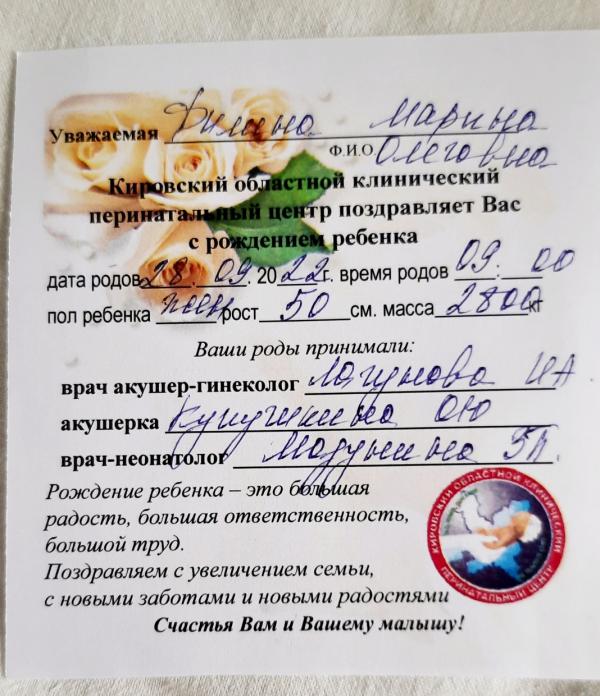 Уважаемая Филина Марина
Ф.И.О Олеговна
Кировский областной клинический
перинатальный центр поздравляет Вас
с рождением ребенка
дата родов 28. 09. 2022г. время родов 09. 00
пол ребенка жен рост 50 см. масса 2800 кг
Ваши роды принимали:
врач акушер-гинеколог Лагунова НА
акушерка Кукушкина ОЮ
врач-неонатолог
Рождение ребенка – это большая
радость, большая ответственность,
большой труд.
Поздравляем с увеличением семьи,
с новыми заботами и новыми радостями
Счастья Вам и Вашему малышу!
КИРОВСКИЙ ОБЛАСТНОЙ КЛИНИЧЕСКИЙ
ПЕРИНАТАЛЬНЫЙ ЦЕНТР